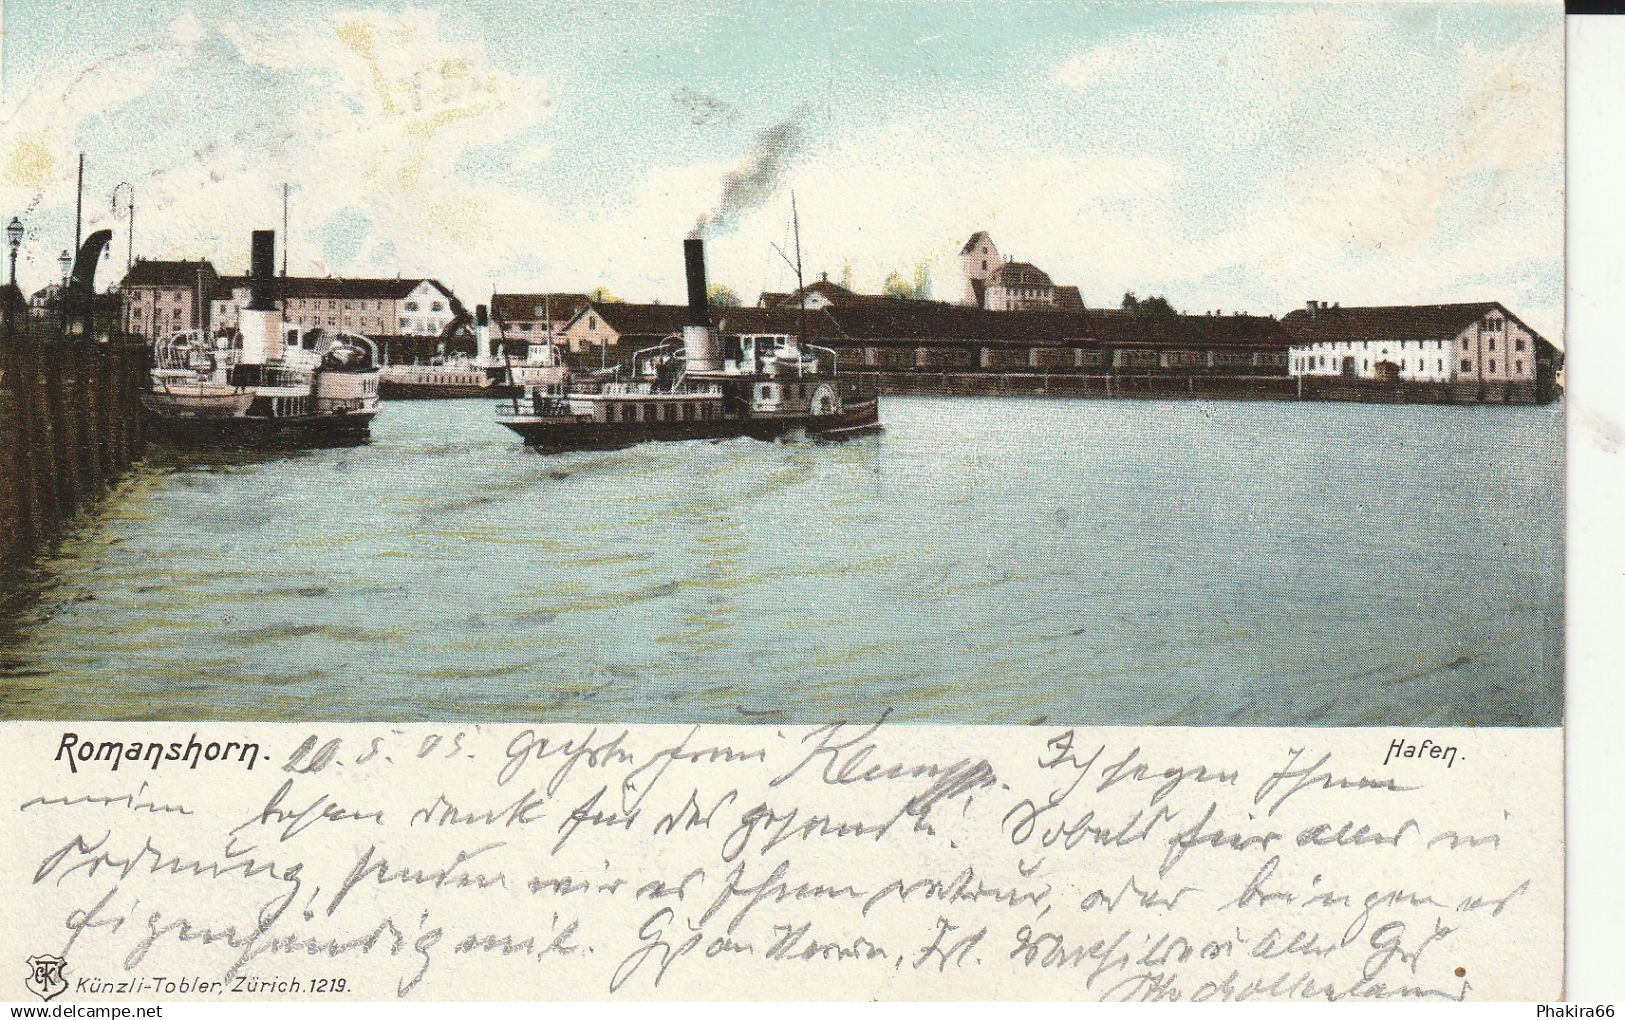 Romanshorn. 20.5.05. Geehrte Frau Ich sagen Ihnen Hafen.
meinen dank für das gesandte! Sobald für alles in
Ordnung, senden wir es Ihnen retour, oder bringen es
Eigenhändig mit. Gruss an Herrn, Frl. Alle
Künzli-Tobler, Zürich. 1219.
Phakira66
delcampe.net